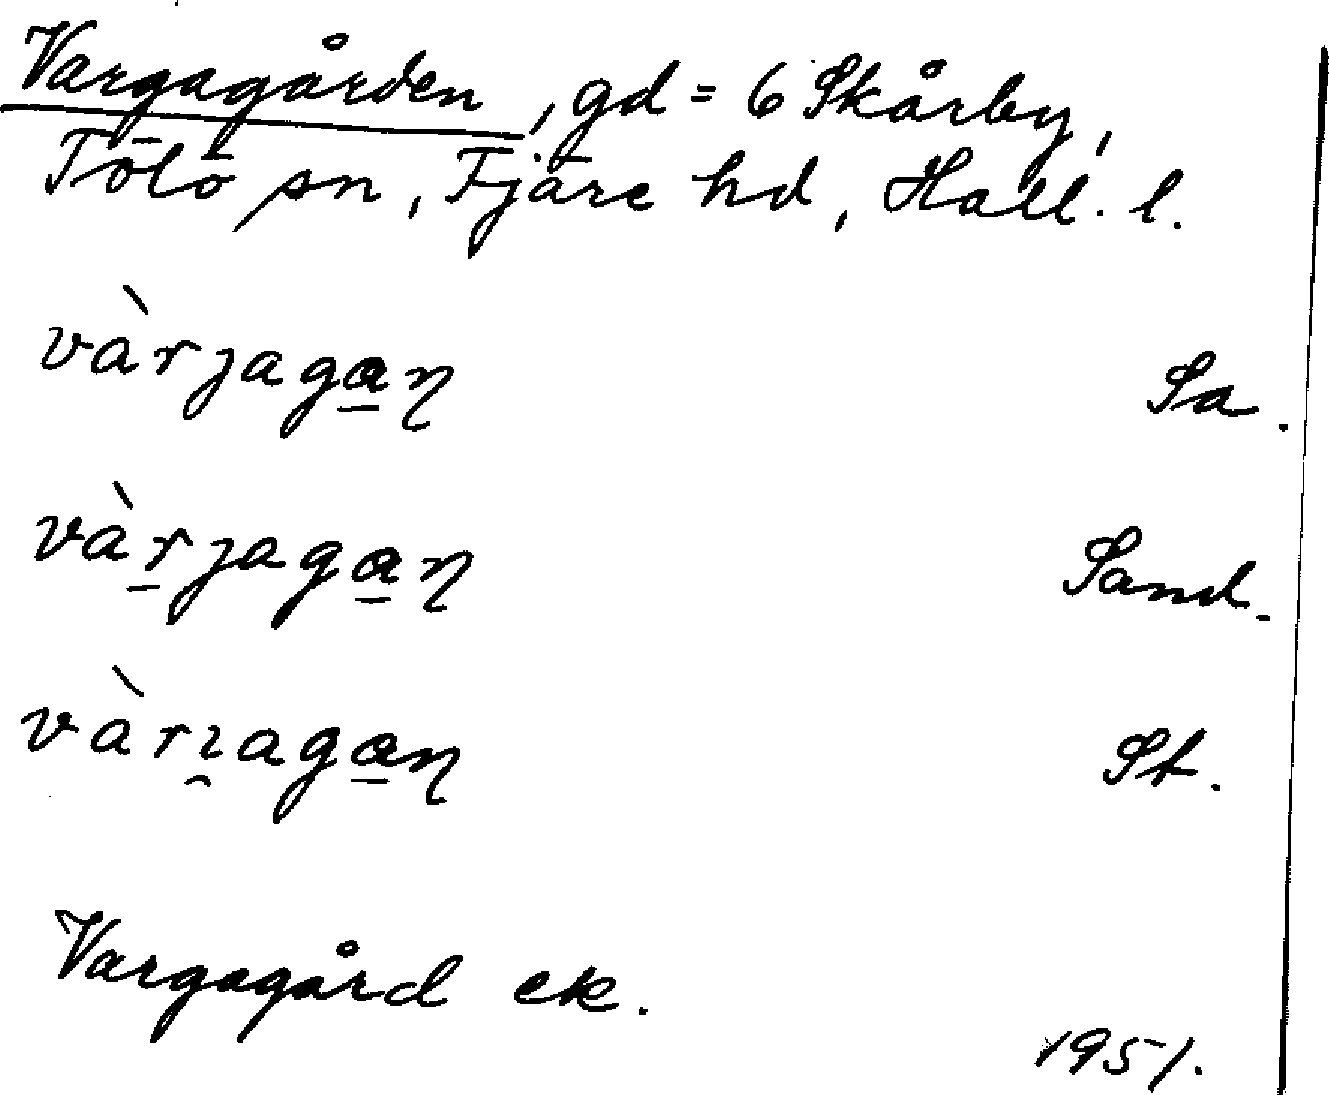 Vargagården, gd = 6 Skårby,
Tölö sn, Fjäre hd, Hall. l.
vàrȷaga̲ɳ Sa.
vàr̲ȷaga̲ɳ Sand.
vàrı̯aga̲ɳ St.
Vargagård ek.
1951.